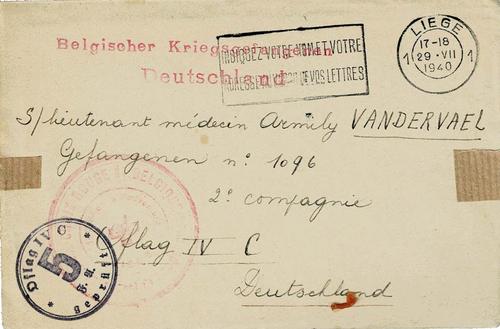 Belgischer Kriegsgefangenen
Deutschland
INDIQUEZ VOTRE NOM ET VOTRE
ADRESSE AU DOS DE VOS LETTRES
LIEGE
17-18
1 29·VII 1
1940
S/lieutenant médecin Armily VANDERVAEL
Gefangenen n° 1096
2e compagnie
Oflag IV C
Deutschland
CROIX ROUGE DE BELGIQUE
Oflag IV C
5
geprüft